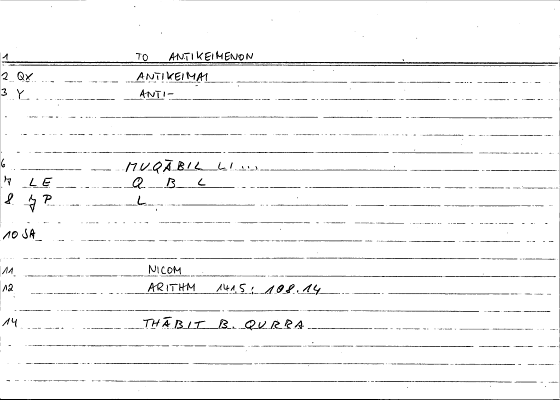 1 TO ANTIKEIMENON
2 QY ANTIKEIMAI
3 Y ANTI-
6 MUQĀBIL LI...
7 LE Q B L
8 P L
10 SA
11 NICOM
12 ARITHM 141.5: 108.14
14 THĀBIT B. QURRA